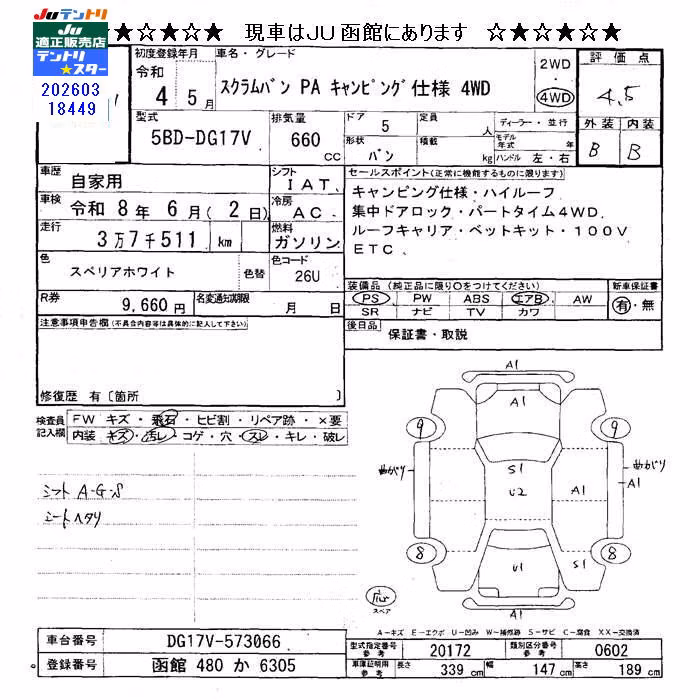 JUテントリ
☆★☆★☆ 現車はJU函館にあります ☆★☆★☆
JU
適正販売店
テントリ
スター
202603
18449
初度登録年月 令和 4 年 5 月
車名・グレード
スクラムバン PA キャンピング仕様 4WD
2WD
・
4WD
評価点
4.5
外装 内装
B B
型式
5BD-DG17V
排気量
660 CC
ドア 5
形状 バン
定員 人
積載 kg
ディーラー・並行
モデル年式 年
ハンドル 左・右
車歴 自家用
シフト IAT
車検 令和 8年 6月( 2日)
冷房 AC
走行 3万7千511 km
燃料 ガソリン
色 スペリアホワイト 色替
色コード 26U
R券 9,660円
名変通知期限 月 日
セールスポイント(正常に機能するものに限ります)
キャンピング仕様・ハイルーフ
集中ドアロック・パートタイム4WD
ルーフキャリア・ベットキット・100V
ETC
装備品 (純正品に限り○をつけてください)
新車保証書
PS PW ABS エアB AW
有・無
SR ナビ TV カワ
後日品 保証書・取説
注意事項申告欄(不具合内容等は具体的に記入して下さい)
修復歴 有〔箇所 〕
検査員
記入欄
FW キズ・飛石・ヒビ割・リペア跡・×要
内装 キズ・汚レ・コゲ・穴・スレ・キレ・破レ
シフトA-G-S
シートヘタリ
A1
A1
9 9
曲がり
曲がり
A1
S1
U2
A1
8 8
U1
S1
A1
スペア
A-キズ E-エクボ U-凹み W-補修跡 S-サビ C-腐食 XX-交換済
車台番号 DG17V-573066
登録番号 函館 480 か 6305
型式指定番号 参考 20172
類別区分番号 参考 0602
車庫証明用 参考 長さ 339 cm 幅 147 cm 高さ 189 cm